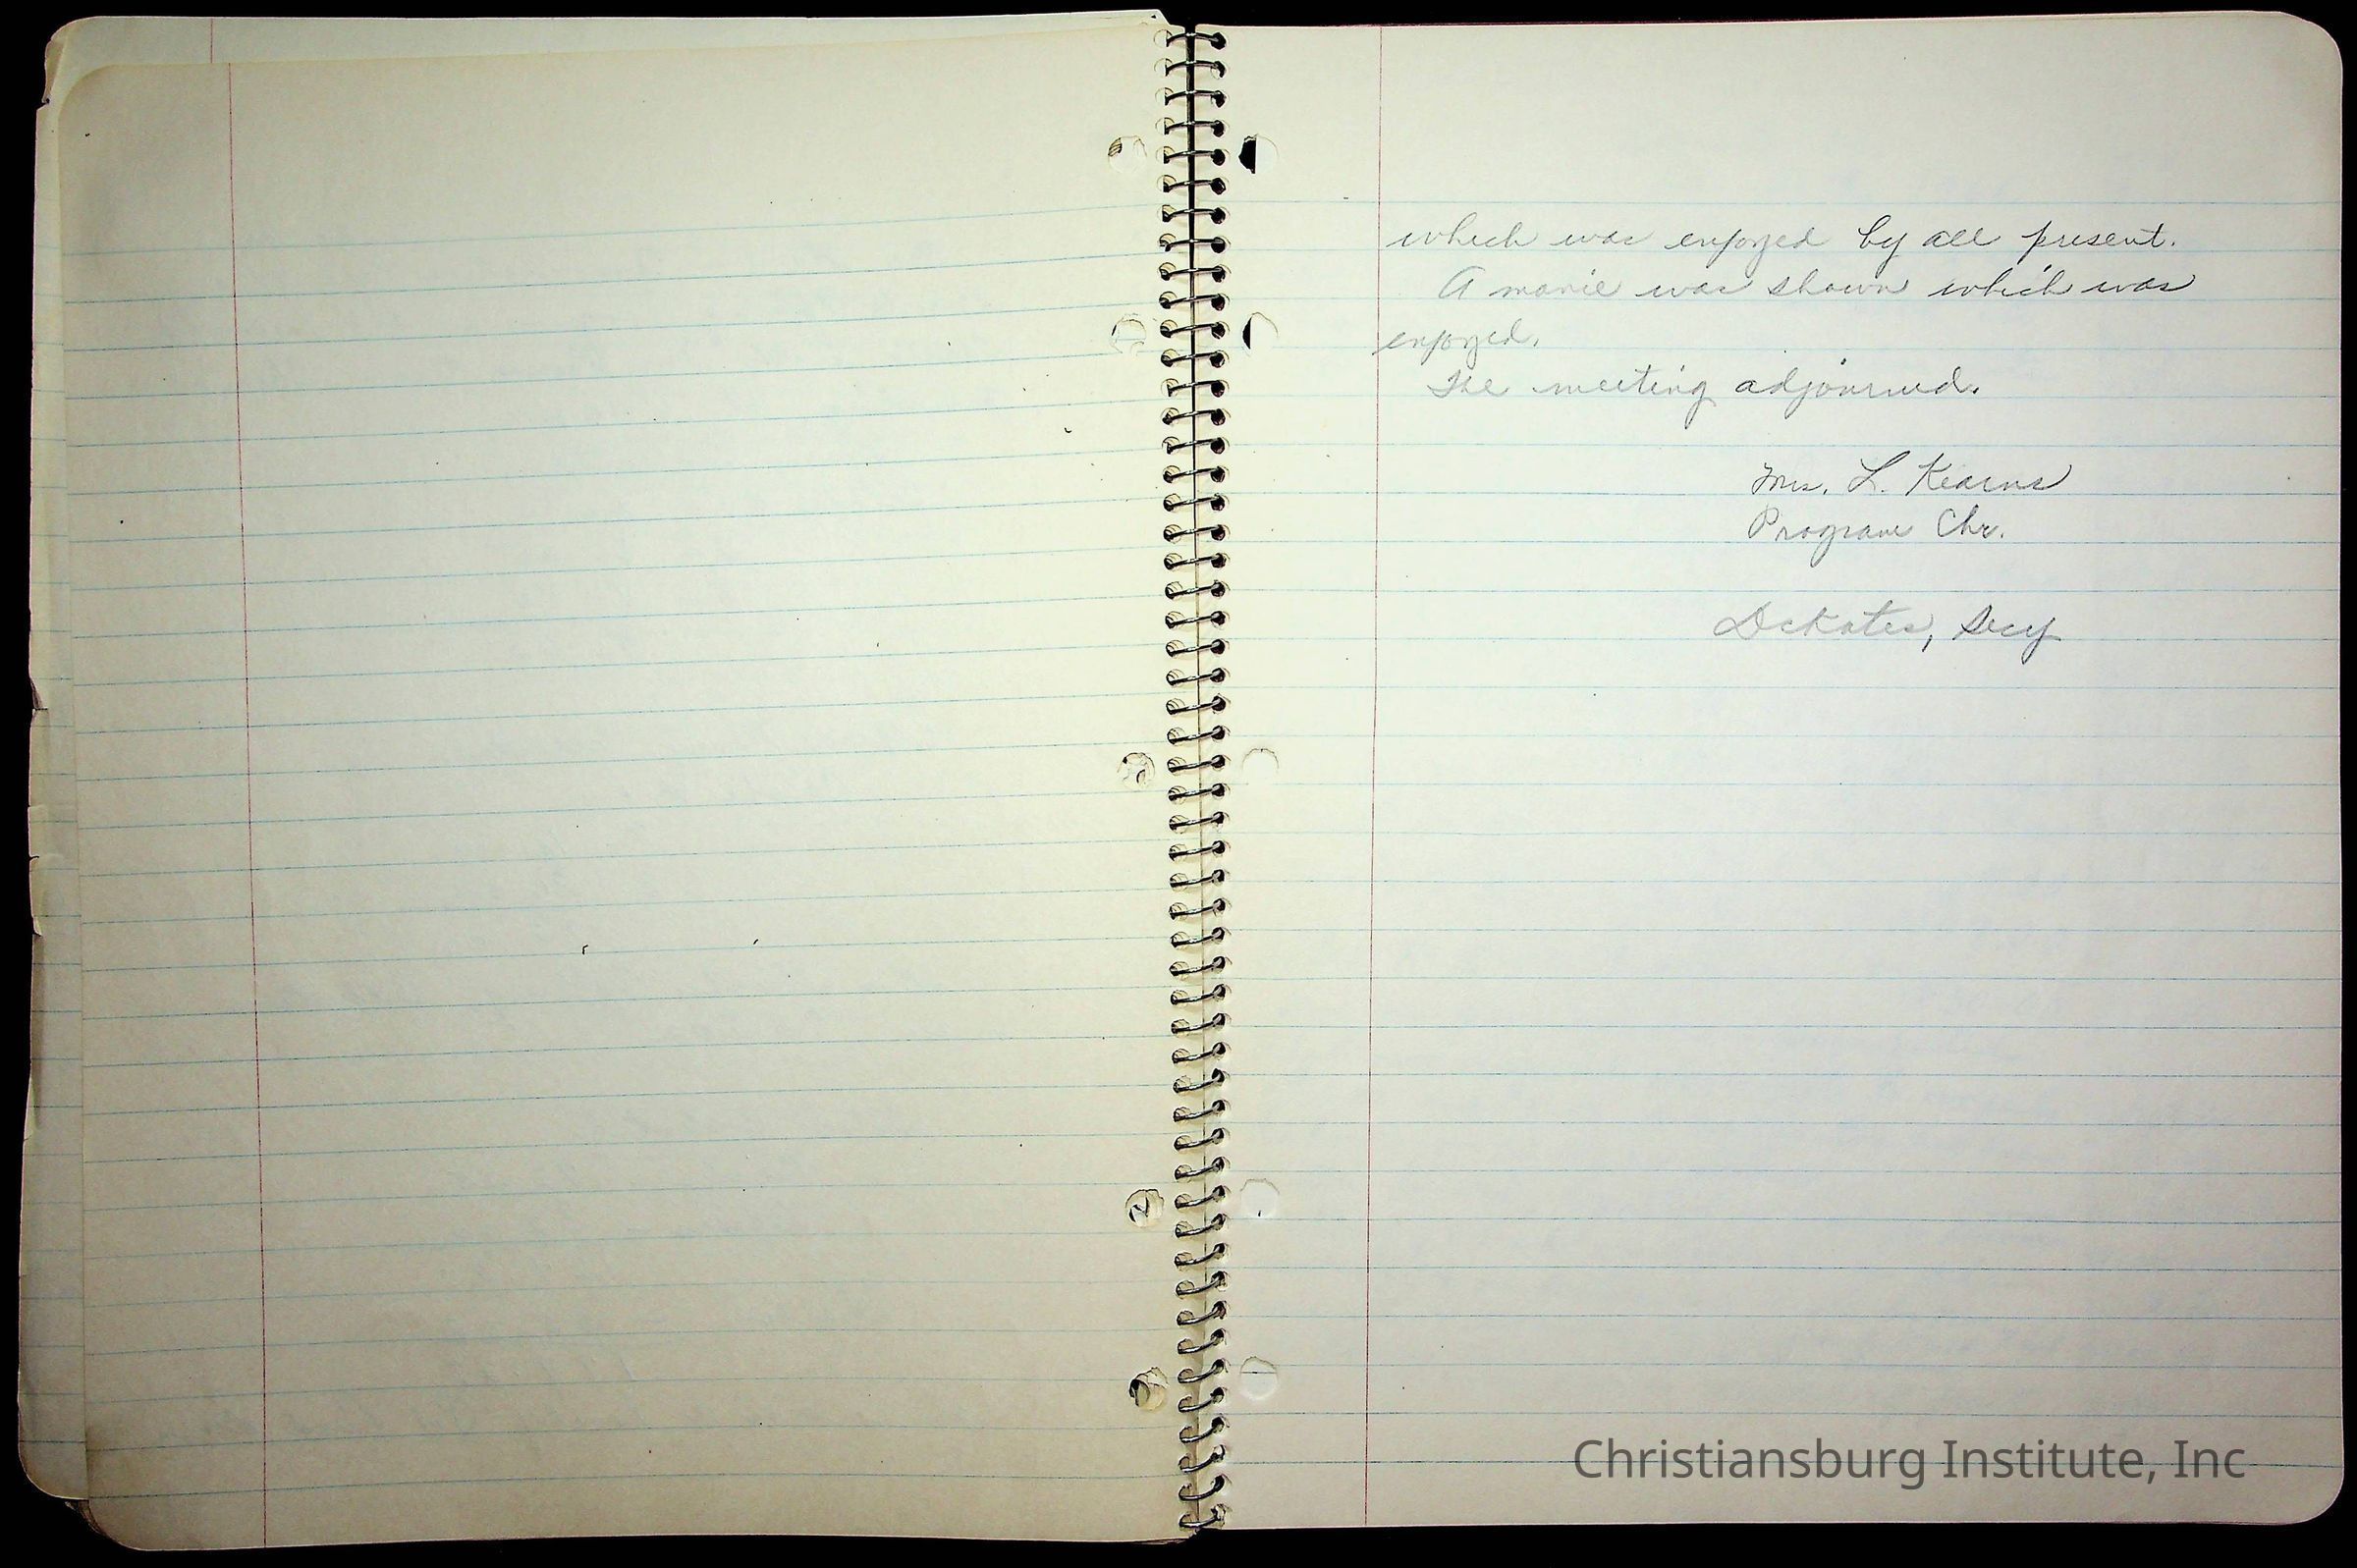 which was enjoyed by all present.
A movie was shown which was
enjoyed.
The meeting adjourned.
Mrs. L. Kearns
Program Chr.
Secy
Christiansburg Institute, Inc